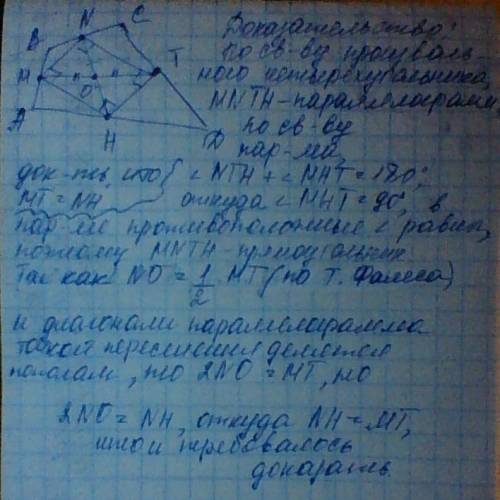 B N C
M O T
A H D
Доказательство:
по св-ву произволь-
ного четырехугольника,
MNTH-параллелограмм,
по св-ву
пар-ма
док-ть, что { ∠NTH + ∠MHT = 180°,
MT = NH откуда ∠MHT = 90°, в
пар-ме противоположные ∠ равны,
поэтому MNTH-прямоугольник
Так как NO = 1/2 MT (по т. Фалеса)
и диагонали параллелограмма
точкой пересечения делятся
пополам, то 2NO = MT, но
2NO = NH, откуда NH = MT,
что и требовалось
доказать.